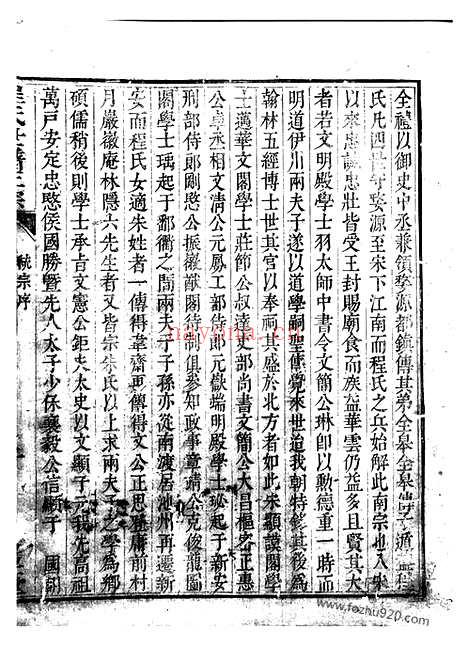 全禮以御史中丞兼領婺源都鎮傳其弟全皋全皋傳子遁
氏凡四世守婺源至宋下江南而程氏之兵始解此南宗也入宋
以來忠誠忠壯皆受王封賜廟食而族益華雲仍益多且賢其大
者若文明殿學士羽太師中書令文簡公琳即以勲德重一時而
明道伊川兩夫子遂以道學嗣聖傳覺來世迨我朝特錄其後為
翰林五經博士世其官以奉祠其盛於北方者如此朱顯謨閣學
士邁華文閣學士莊節公叔達吏部尚書文簡公大昌樞密正惠
公卓丞相文清公元鳳工部侍郎元嶽端明殿學士珌起于新安
刑部侍郎剛愍公振徽猷閣待制俱參知政事章靖公克俊龍圖
閣學士瑀起于鄱衢之間兩夫子子孫亦從南渡居池州再遷新
安而程氏女適朱姓者一傳得韋齋再傳得文公正思登庸前村
月巖徽庵林隱六先生者又皆宗朱氏以上求兩夫子之學為鄉
碩儒稍後則學士承旨文憲公鉅夫太史以文顯于元我先高祖
萬戶安定忠愍侯國勝暨先人太子少保襄毅公信顯于 國朝
統宗序
nayona.cn
www.fozhu920.com